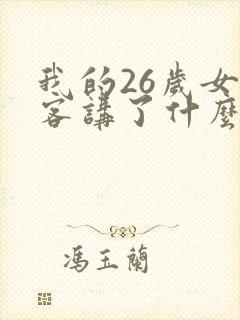 我的26歲女
客講了什麼
馮玉蘭